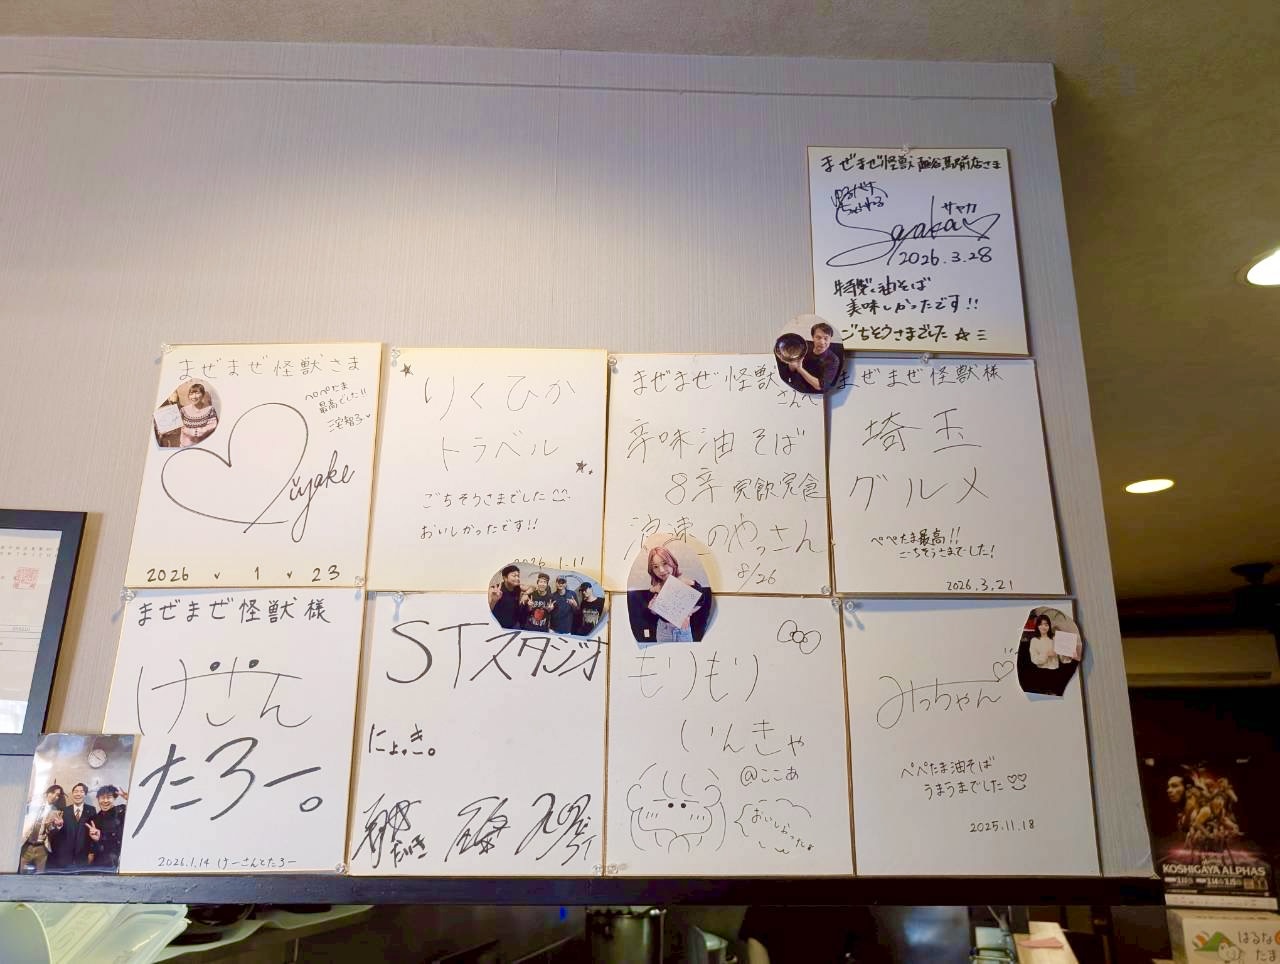 まぜまぜ怪獣 越谷駅前店さま
サヤカ
Sayaka
2026.3.28
特製油そば
美味しかったです!!
ごちそうさまでした☆
まぜまぜ怪獣さま
ぺぺたま
最高でした!!
三宅智子
Miyake
2026.1.23
りくひか
トラベル
ごちそうさまでした
おいしかったです!!
2026.1.11
まぜまぜ怪獣
さんへ
辛味油そば
8辛 完飲完食
浪速のやっさん
8/26
まぜまぜ怪獣様
埼玉
グルメ
ぺぺたま最高!!
ごちそうさまでした!
2026.3.21
まぜまぜ怪獣様
けーさん
たろー。
2026.1.14 けーさんとたろー
STスタジオ
にょっき。
もりもり
いんきゃ
@ここあ
おいしかったよ
みっちゃん
ぺぺたま油そば
うまうまでした♡♡
2025.11.18
KOSHIGAYA ALPHAS
はるな
たま